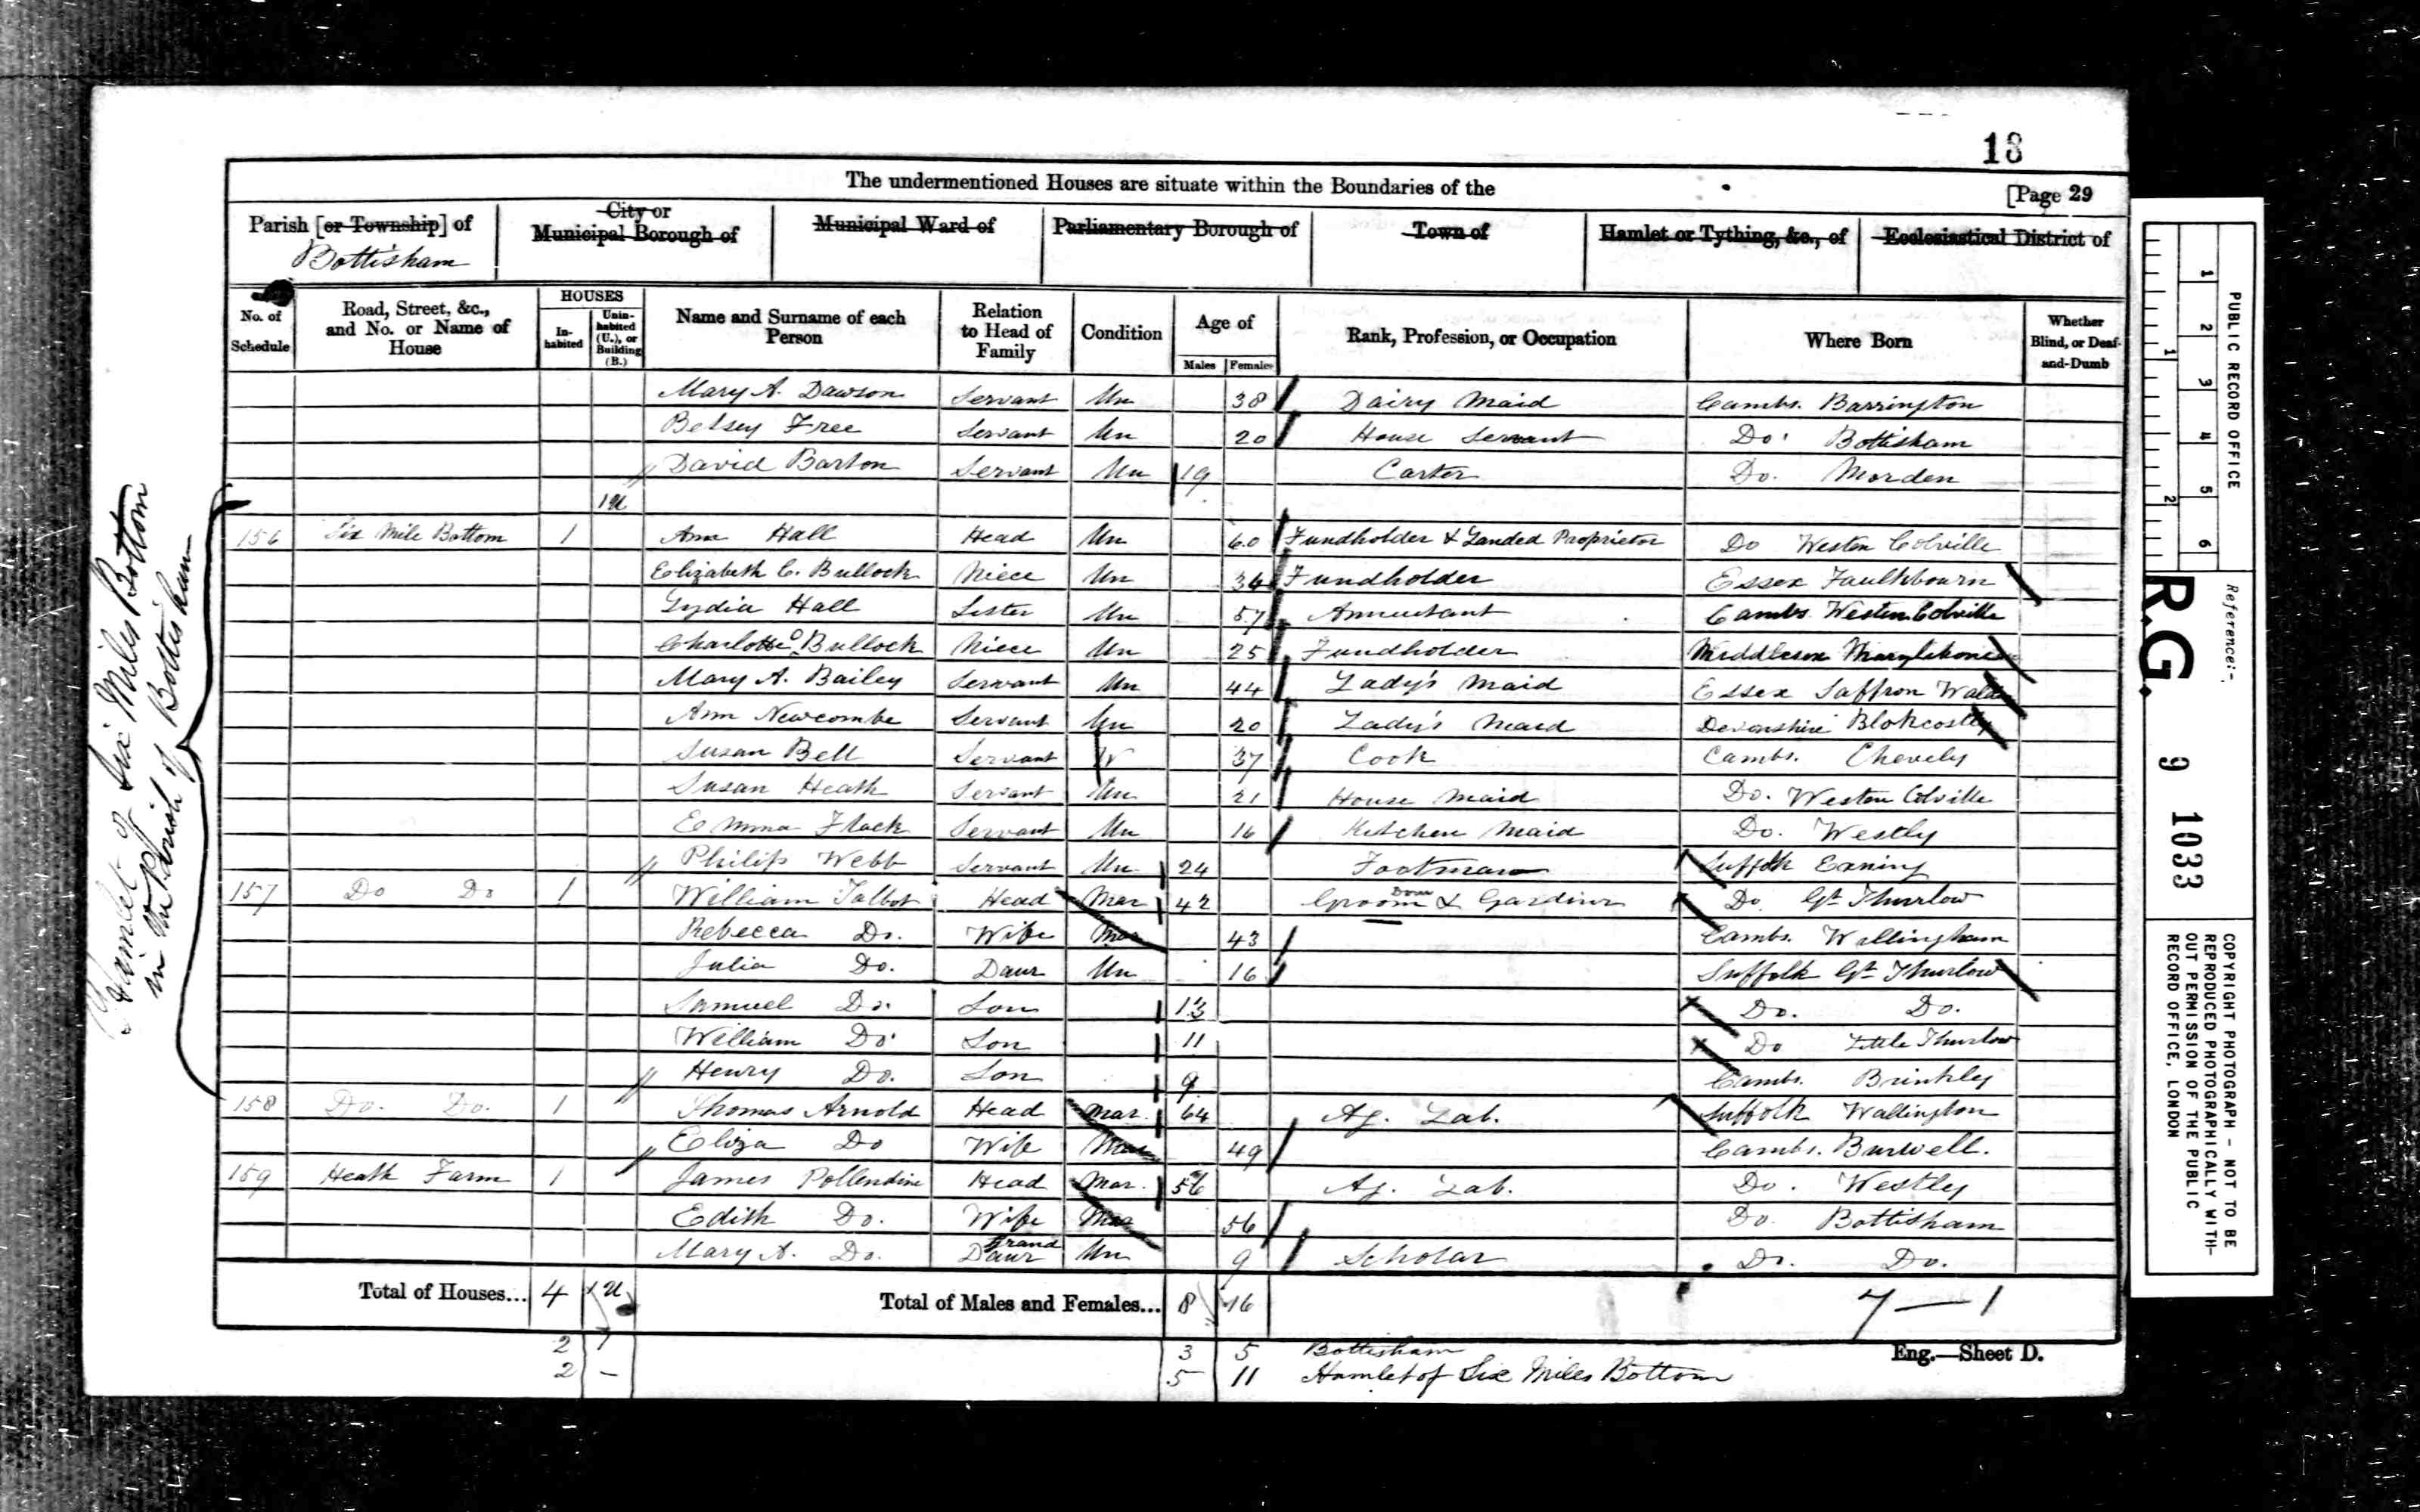 13
The undermentioned Houses are situate within the Boundaries of the
[Page 29
Parish [or Township] of
City or
Municipal Borough of
Municipal Ward of
Parliamentary Borough of
Town of
Hamlet or Tything, &c., of
Ecclesiastical District of
Bottisham
No. of Schedule
Road, Street, &c., and No. or Name of House
HOUSES
In-habited
Unin-habited (U.), or Building (B.)
Name and Surname of each Person
Relation to Head of Family
Condition
Age of
Males
Females
Rank, Profession, or Occupation
Where Born
Whether Blind, or Deaf-and-Dumb
Mary A. Dawson Servant Un 38 Dairy Maid Cambs. Barrington
Betsey Free Servant Un 20 House Servant Do. Bottisham
David Barton Servant Un 19 Carter Do. Morden
1U
156 Six Mile Bottom 1 Ann Hall Head Un 60 Fundholder & Landed Proprietor Do Weston Colville
Elizabeth C. Bullock Niece Un 34 Fundholder Essex Faulkbourn
Lydia Hall Sister Un 57 Annuitant Cambs Weston Colville
Charlotte O. Bullock Niece Un 25 Fundholder Middlesex Marylebone
Mary A. Bailey Servant Un 44 Lady's Maid Essex Saffron Walden
Ann Newcombe Servant Un 20 Lady's Maid Devonshire
Susan Bell Servant W 37 Cook Cambs. Chevely
Susan Heath Servant Un 21 House Maid Do. Weston Colville
Emma Flack Servant Un 16 Kitchen Maid Do. Westly
Philip Webb Servant Un 24 Footman Suffolk Exning
157 Do Do 1 William Talbot Head Mar 42 Groom Dom & Gardiner Do Gt Thurlow
Rebecca Do. Wife Mar 43 Cambs. Wallingham
Julia Do. Daur Un 16 Suffolk Gt Thurlow
Samuel Do. Son 13 Do. Do.
William Do. Son 11 Do Little Thurlow
Henry Do. Son 9 Cambs. Brinkley
158 Do. Do. 1 Thomas Arnold Head Mar. 64 Ag. Lab. Suffolk Wallington
Eliza Do Wife Mar 49 Cambs. Burwell.
159 Heath Farm 1 James Pollendine Head Mar. 56 Ag. Lab. Do. Westley
Edith Do. Wife Mar 56 Do. Bottisham
Mary A. Do. Grand Daur Un 9 Scholar Do. Do.
Total of Houses... 4 1U Total of Males and Females... 8 16 7 — 1
2 1 3 5 Bottisham
2 – 5 11 Hamlet of Six Miles Bottom
Eng.—Sheet D.
Hamlet of Six Miles Bottom
in the Parish of Bottisham
PUBLIC RECORD OFFICE
1 2 3 4 5 6
1 2
Reference:-
R.G. 9 1033
COPYRIGHT PHOTOGRAPH - NOT TO BE
REPRODUCED PHOTOGRAPHICALLY WITH-
OUT PERMISSION OF THE PUBLIC
RECORD OFFICE, LONDON